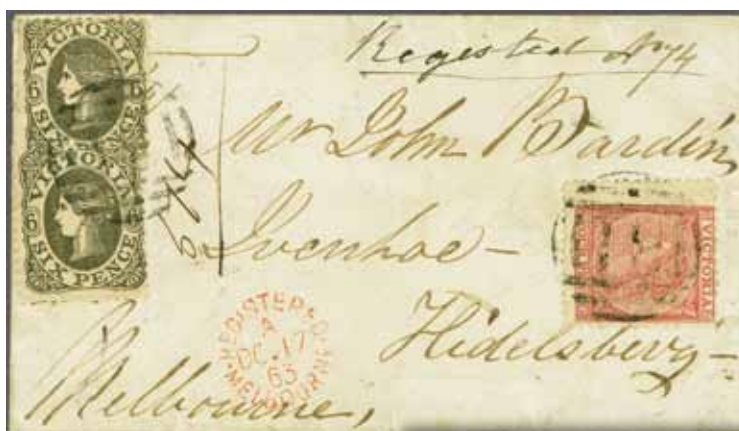 VICTORIA
6 6
SIX PENCE
VICTORIA
6 6
SIX PENCE
Registed No 74
Mr John Bardin,
Ivenhoe –
Hidelsberg –
Melbourne,
VICTORIA
REGISTERED
A
DC 17
63
MELBOURNE